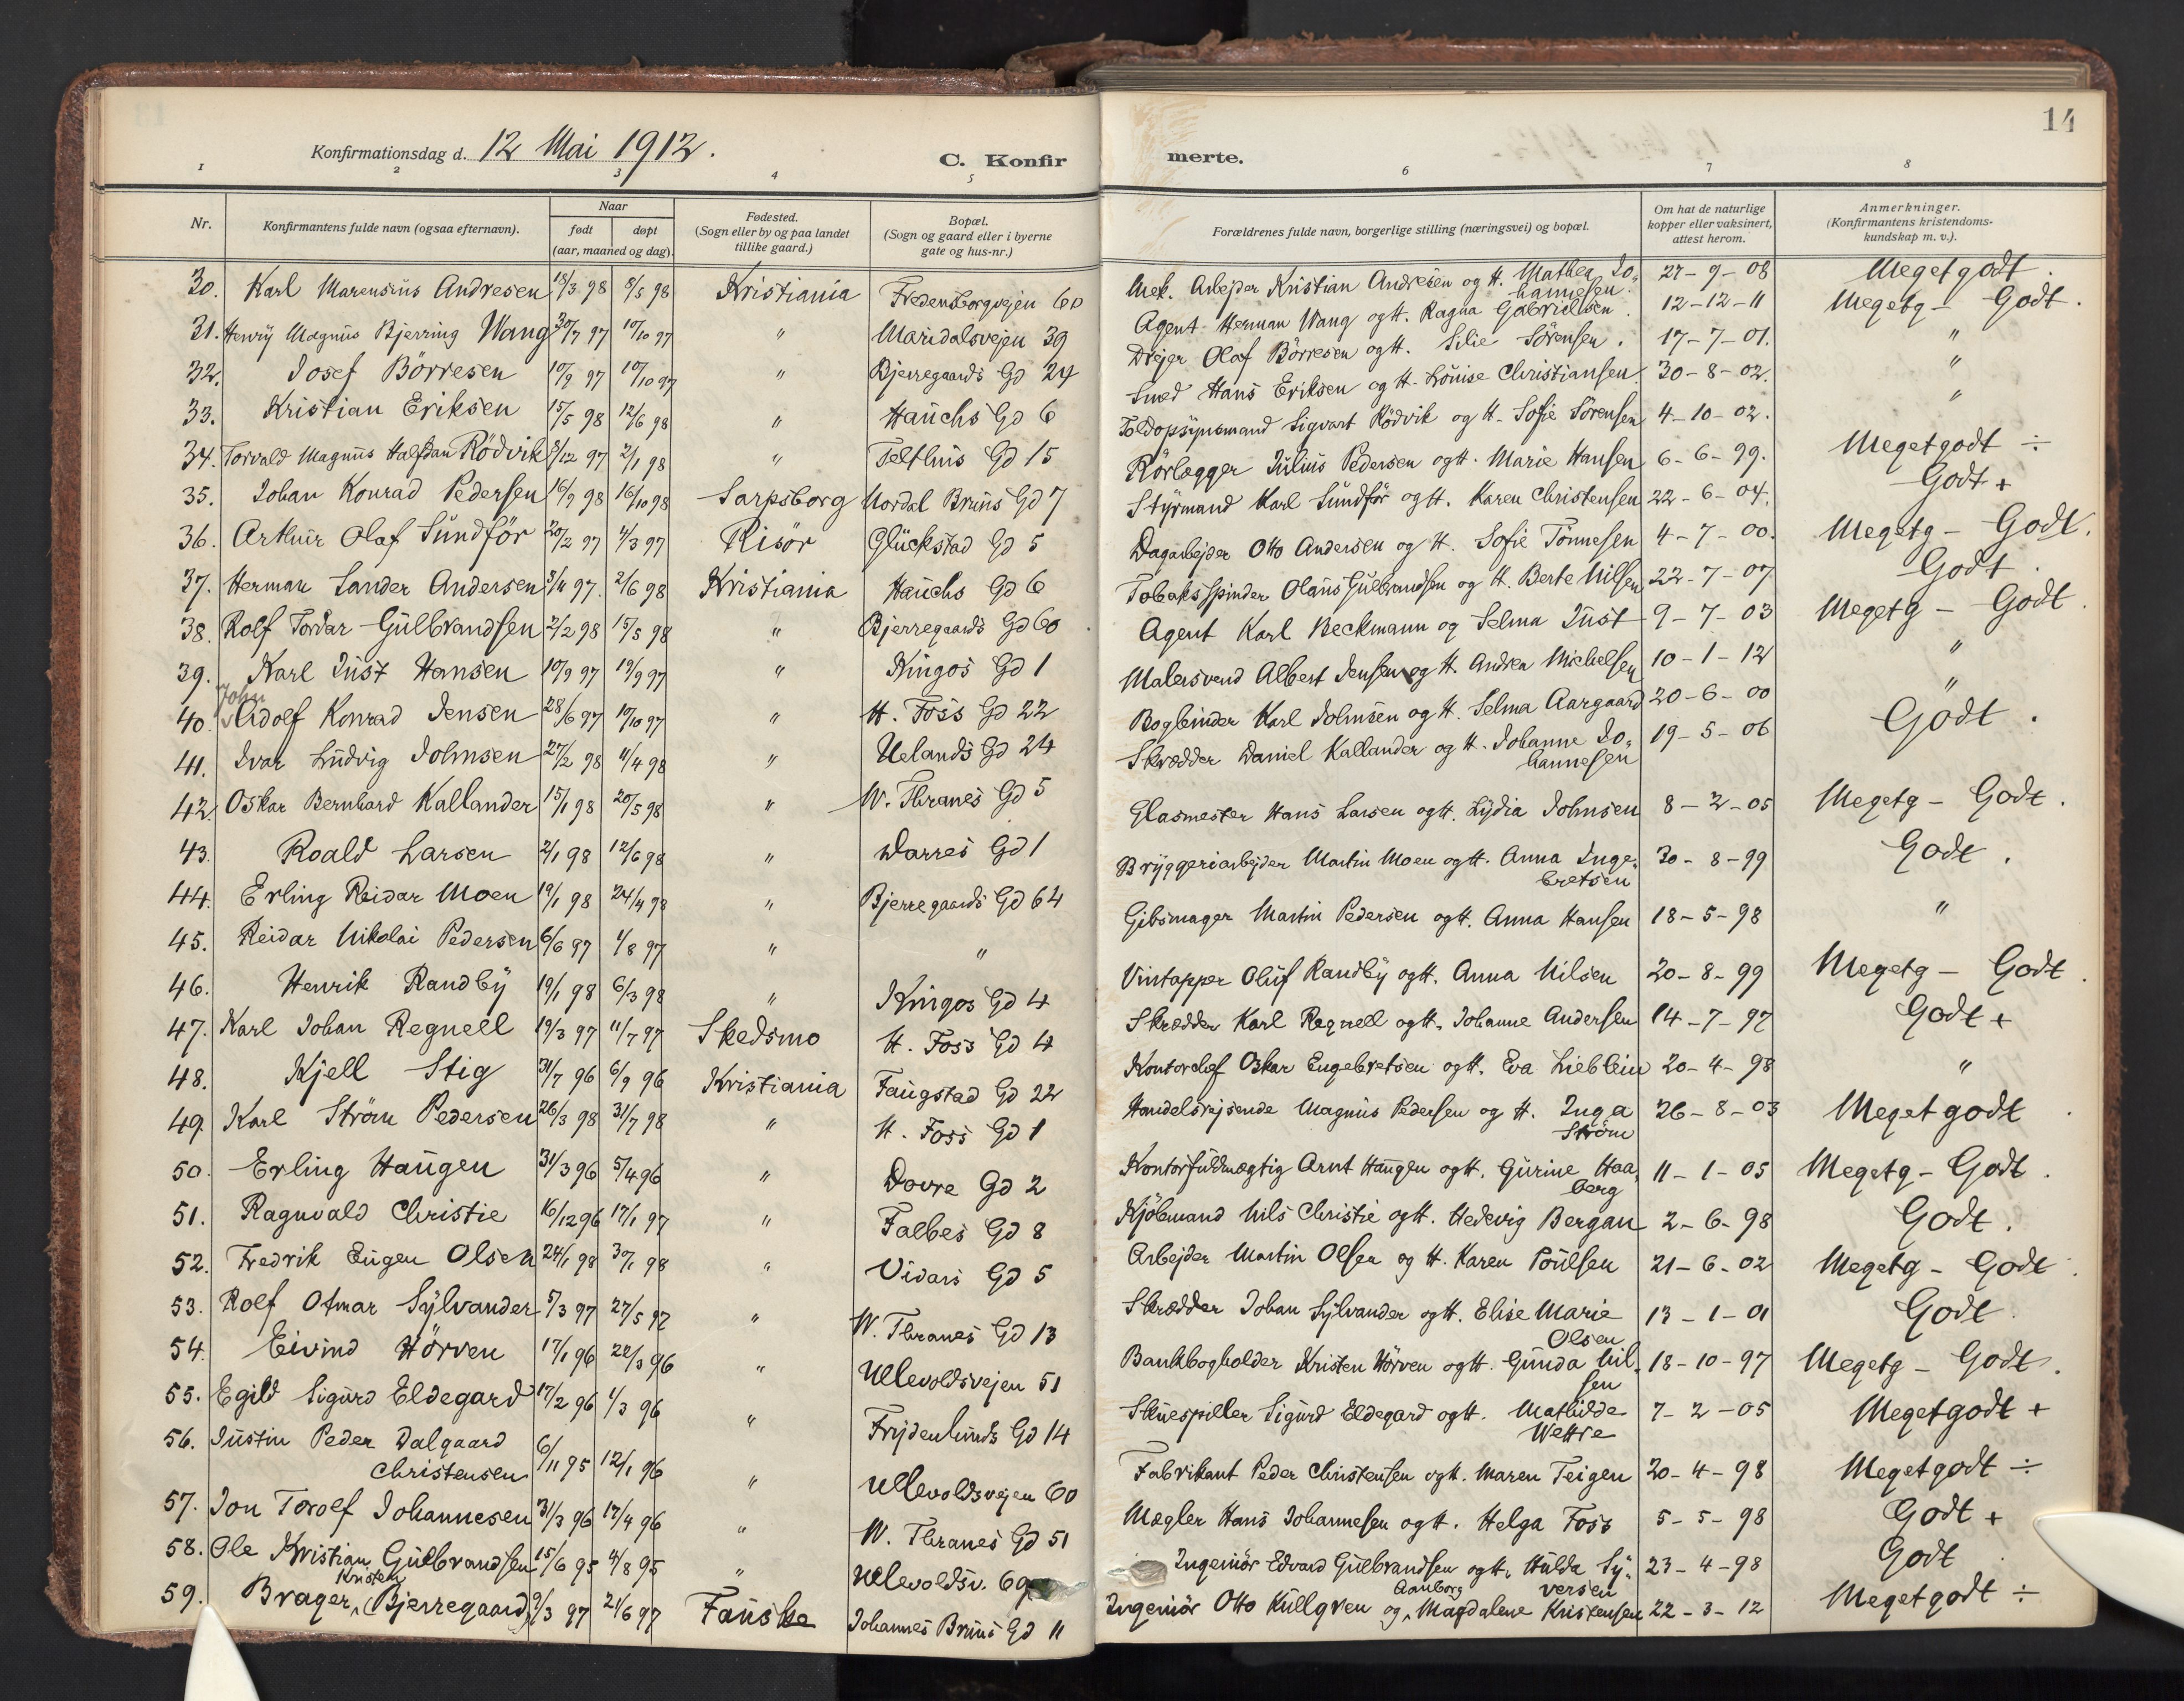 14
Konfirmationsdag d. 12 Mai 1912.
C. Konfir merte.
1 2 3 4 5 6 7 8
Nr.
Konfirmantens fulde navn (ogsaa efternavn).
Naar
født døpt
(aar, maaned og dag).
Fødested.
(Sogn eller by og paa landet
tillike gaard.)
Bopæl.
(Sogn og gaard eller i byerne
gate og hus-nr.)
Forældrenes fulde navn, borgerlige stilling (næringsvei) og bopæl.
Om hat de naturlige
kopper eller vaksinert,
attest herom.
Anmerkninger.
(Konfirmantens kristendoms-
kundskap m. v.).
30. Karl Marensius Andresen 18/3 98 8/5 98 Kristiania Fredensborgvejen 60 Mek. Arbejder Kristian Andresen og H. Mathea Jo- hannesen. 27-9-08 Megetgodt.
31. Henry Magnus Bjerring Wang 30/7 97 10/10 97 " Maridalsvejen 39 Agent Herman Wang og H. Ragna Gabrielsen. 12-12-11 Megetg- Godt.
32. Josef Börresen 10/9 97 10/10 97 " Bjerregaards Gd 24 Drejer Olaf Börresen og H. Silie Sörensen. 17-7-01. "
33. Kristian Eriksen 15/5 98 12/6 98 " Hauchs Gd 6 Smed Hans Eriksen og H. Louise Christiansen. 30-8-02. "
34. Torvald Magnus Halfdan Rödvik 8/12 97 2/1 98 " Telthus Gd 15 Toldopsynsmand Sigvart Rödvik og H. Sofie Sörensen 4-10-02. "
35. Johan Konrad Pedersen 16/9 98 16/10 98 Sarpsborg Nordal Bruns Gd 7 Rörlægger Julius Pedersen og H. Marie Hansen 6-6-99. Megetgodt ÷
36. Arthur Olaf Sundför 20/2 97 4/3 97 Risör Glückstad Gd 5 Styrmand Karl Sundför og H. Karen Christensen 22-6-04. Godt +
37. Herman Sander Andersen 3/4 97. 2/6 98 Kristiania Hauchs Gd 6 Dagarbejder Otto Andersen og H. Sofie Tonnesen 4-7-00. Megetg- Godt.
38. Rolf Tordar Gulbrandsen 2/2 98 15/5 98 " Bjerregaards Gd 60 Tobaksspinder Olaus Gulbrandsen og H. Berte Nilsen 22-7-07 Godt.
39. Karl Just Hansen 10/9 97 19/9 97 " Kingos Gd 1 Agent Karl Beckmann og Selma Just 9-7-03 Megetg- Godt.
40. John Adolf Konrad Jensen 28/6 97 10/10 97 " H. Foss Gd 22 Malersvend Albert Jensen og H. Andrea Michelsen 10-1-12 "
41. Ivar Ludvig Johnsen 27/2 98 11/4 98 " Uelands Gd 24 Bogbinder Karl Johnsen og H. Selma Aargaard 20-6-00 "
42. Oskar Bernhard Kallander 15/1 98 20/5 98 " W. Thranes Gd 5 Skrædder Daniel Kallander og H. Johanne Jo- hannesen 19-5-06 Godt.
43. Roald Larsen 2/1 98 12/6 98 " Darres Gd 1 Glasmester Hans Larsen og H. Lydia Johnsen 8-2-05 Megetg- Godt.
44. Erling Reidar Moen 19/1 98 24/4 98 " Bjerregaards Gd 64 Bryggeriarbejder Martin Moen og H. Anna Inge- bretsen 30-8-99 Godt.
45. Reidar Nikolai Pedersen 6/6 97 1/8 97 " " Gibsmager Martin Pedersen og H. Anna Hansen 18-5-98 "
46. Henrik Randby 19/1 98 6/3 98 " Kingos Gd 4 Vintapper Oluf Randby og H. Anna Nilsen 20-8-99 Megetg- Godt.
47. Karl Johan Regnell 19/3 97 11/7 97 Skedsmo H. Foss Gd 4 Skrædder Karl Regnell og H. Johanne Andersen 14-7-97 Godt +
48. Kjell Stig 31/7 96 6/9 96 Kristiania Faugstad Gd 22 Kontorchef Oskar Engebretsen og H. Eva Lieblein 20-4-98 "
49. Karl Ström Pedersen 26/3 98 31/7 98 " H. Foss Gd 1 Handelsrejsende Magnus Pedersen og H. Inga Ström 26-8-03 Megetgodt.
50. Erling Haugen 31/3 96 5/4 96 " Dovre Gd 2 Kontorfuldmægtig Arnt Haugen og H. Gurine Haa- berg 11-1-05 Megetg- Godt.
51. Ragnvald Christie 16/12 96 17/1 97 " Falbes Gd 8 Kjöbmand Nils Christie og H. Hedevig Bergan 2-6-98 Godt.
52. Fredrik Eugen Olsen 24/1 98 30/1 98 " Vidars Gd 5 Arbejder Martin Olsen og H. Karen Poulsen 21-6-02 Megetg- Godt.
53. Rolf Otmar Sylvander 5/3 97 27/5 97 " W. Thranes Gd 13 Skrædder Johan Sylvander og H. Elise Marie Olsen 13-1-01 Godt.
54. Eivind Hörven 17/1 96 22/3 96 " Ullevoldsvejen 51 Bankbogholder Kristen Hörven og H. Gunda Nil- sen 18-10-97 Megetg- Godt.
55. Egild Sigurd Eldegard 17/2 96 1/3 96 " Frydenlunds Gd 14 Skuespiller Sigurd Eldegard og H. Mathilde Wettre 7-2-05 Megetgodt +
56. Justin Peder Dalgaard Christensen 6/11 95 12/1 96 " Ullevoldsvejen 60 Fabrikant Peder Christensen og H. Maren Teigen 20-4-98 Megetgodt ÷
57. Jon Torolf Johannesen 31/3 96 12/4 96 " W. Thranes Gd 51 Mægler Hans Johannesen og H. Helga Foss 5-5-98 Godt +
58. Ole Kristian Gulbrandsen 15/6 95 4/8 95 " Ullevoldsv. 69 Ingeniör Edvard Gulbrandsen og H. Hulda Sy- versen 23-4-98 Godt.
59. Brager, Kristen (Bjerregaard) 9/3 97 21/6 97 Fauske Johannes Bruns Gd 11 Ingeniör Otto Kullgren og Aanborg Magdalene Kristensen 22-3-12 Megetgodt ÷